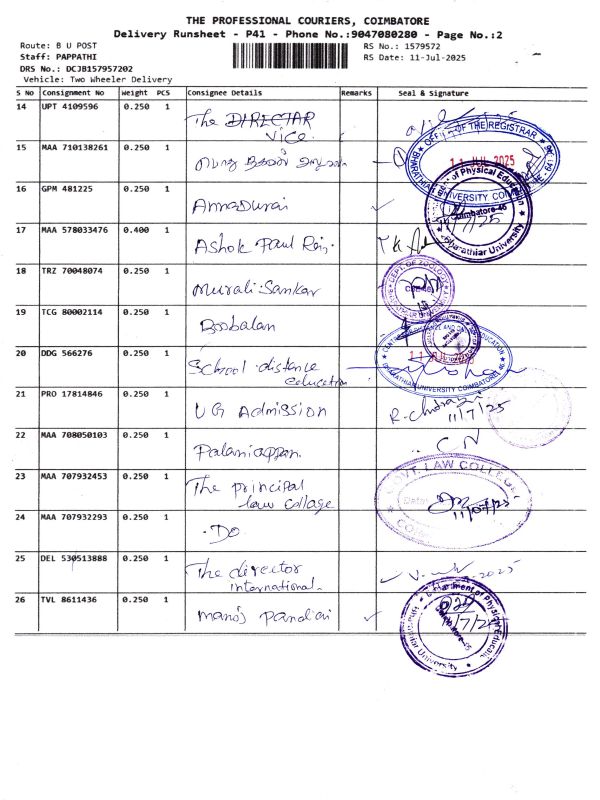 THE PROFESSIONAL COURIERS, COIMBATORE
Delivery Runsheet - P41 - Phone No.:9047080280 - Page No.:2
Route: B U POST
RS No.: 1579572
Staff: PAPPATHI
RS Date: 11-Jul-2025
DRS No.: DCJB157957202
Vehicle: Two Wheeler Delivery
S No Consignment No Weight PCS Consignee Details Remarks Seal & Signature
14 UPT 4109596 0.250 1 The DIRECTAR
Vice.
OFFICE OF THE REGISTRAR
15 MAA 710138261 0.250 1
11 JUL 2025
BHARATHIAR UNIVERSITY COIMBATORE
16 GPM 481225 0.250 1 Annadurai
of Physical Education
Coimbatore-46
11/7/25
Bharathiar University
17 MAA 578033476 0.400 1 Ashok Paul Raj.
18 TRZ 70048074 0.250 1 Murali.Sankar
DEPT. OF ZOOLOGY
19 TCG 80002114 0.250 1 Boobalan
20 DDG 566276 0.250 1 School distance
education
11 JUL 2025
BHARATHIAR UNIVERSITY COIMBATORE
21 PRO 17814846 0.250 1 UG Admission
11/7/25
22 MAA 708050103 0.250 1 Palaniappan.
CN
23 MAA 707932453 0.250 1 The principal
law collage
GOVT. LAW COLLEGE
11/07/25
24 MAA 707932293 0.250 1 .DO
25 DEL 530513888 0.250 1 The director
international.
26 TVL 8611436 0.250 1 Manoj Pandian
Department of Physical Education
11/7/25
Bharathiar University